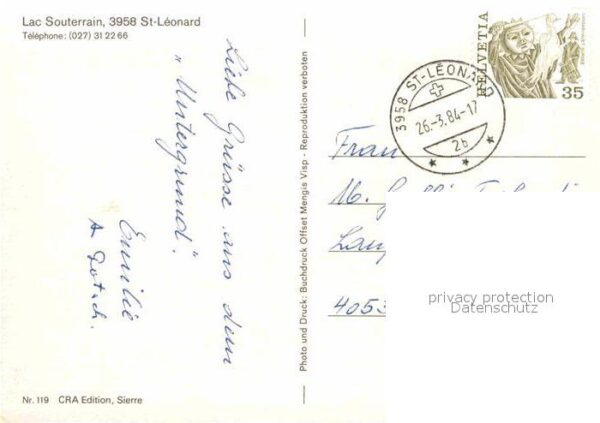 Lac Souterrain, 3958 St-Léonard
Téléphone: (027) 31 22 66
Liebe Grüsse aus dem
„Untergrund".
Emilie
Nr. 119 CRA Edition, Sierre
Photo und Druck: Buchdruck Offset Mengis Visp - Reproduktion verboten
3958 ST-LÉONARD
26.-3.84-17
2b
HELVETIA
35
Frau
M.
4053
privacy protection
Datenschutz